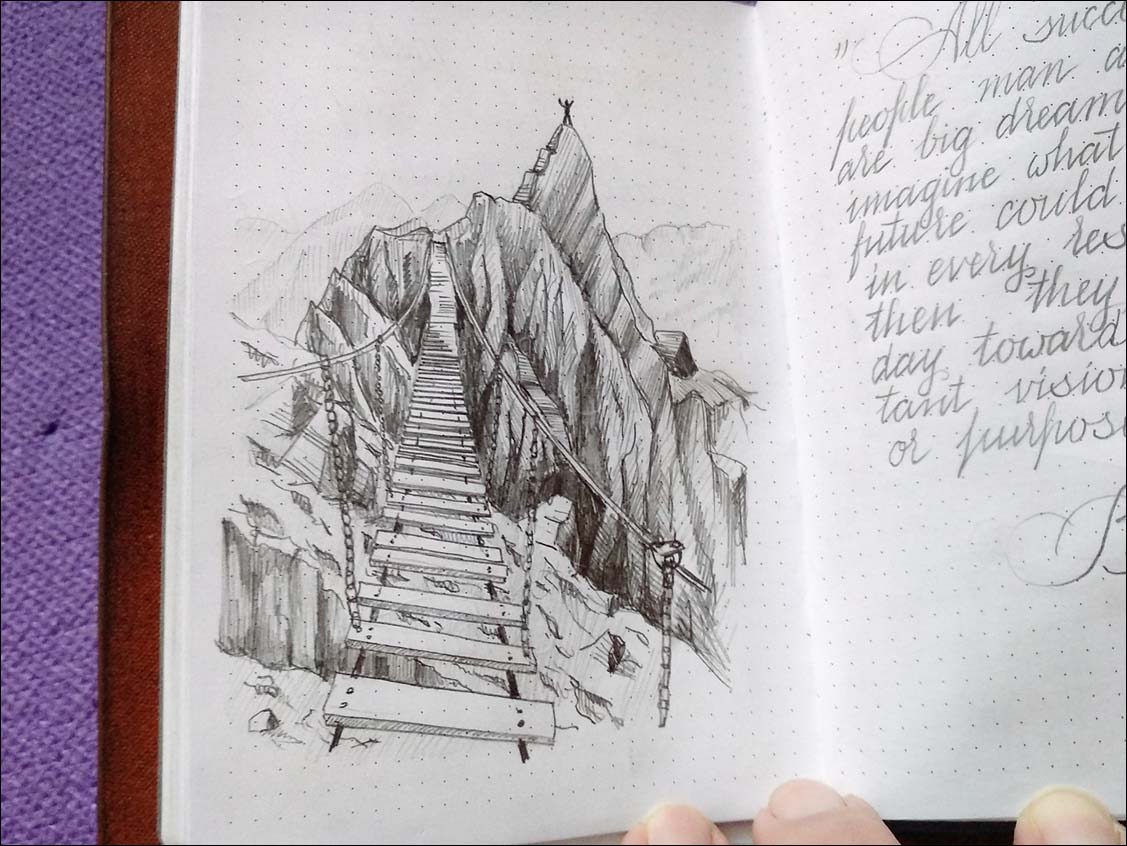 " All succ
people man a
are big dream
imagine what
future could
in every res
then they
day toward
tant vision
or purpos
B